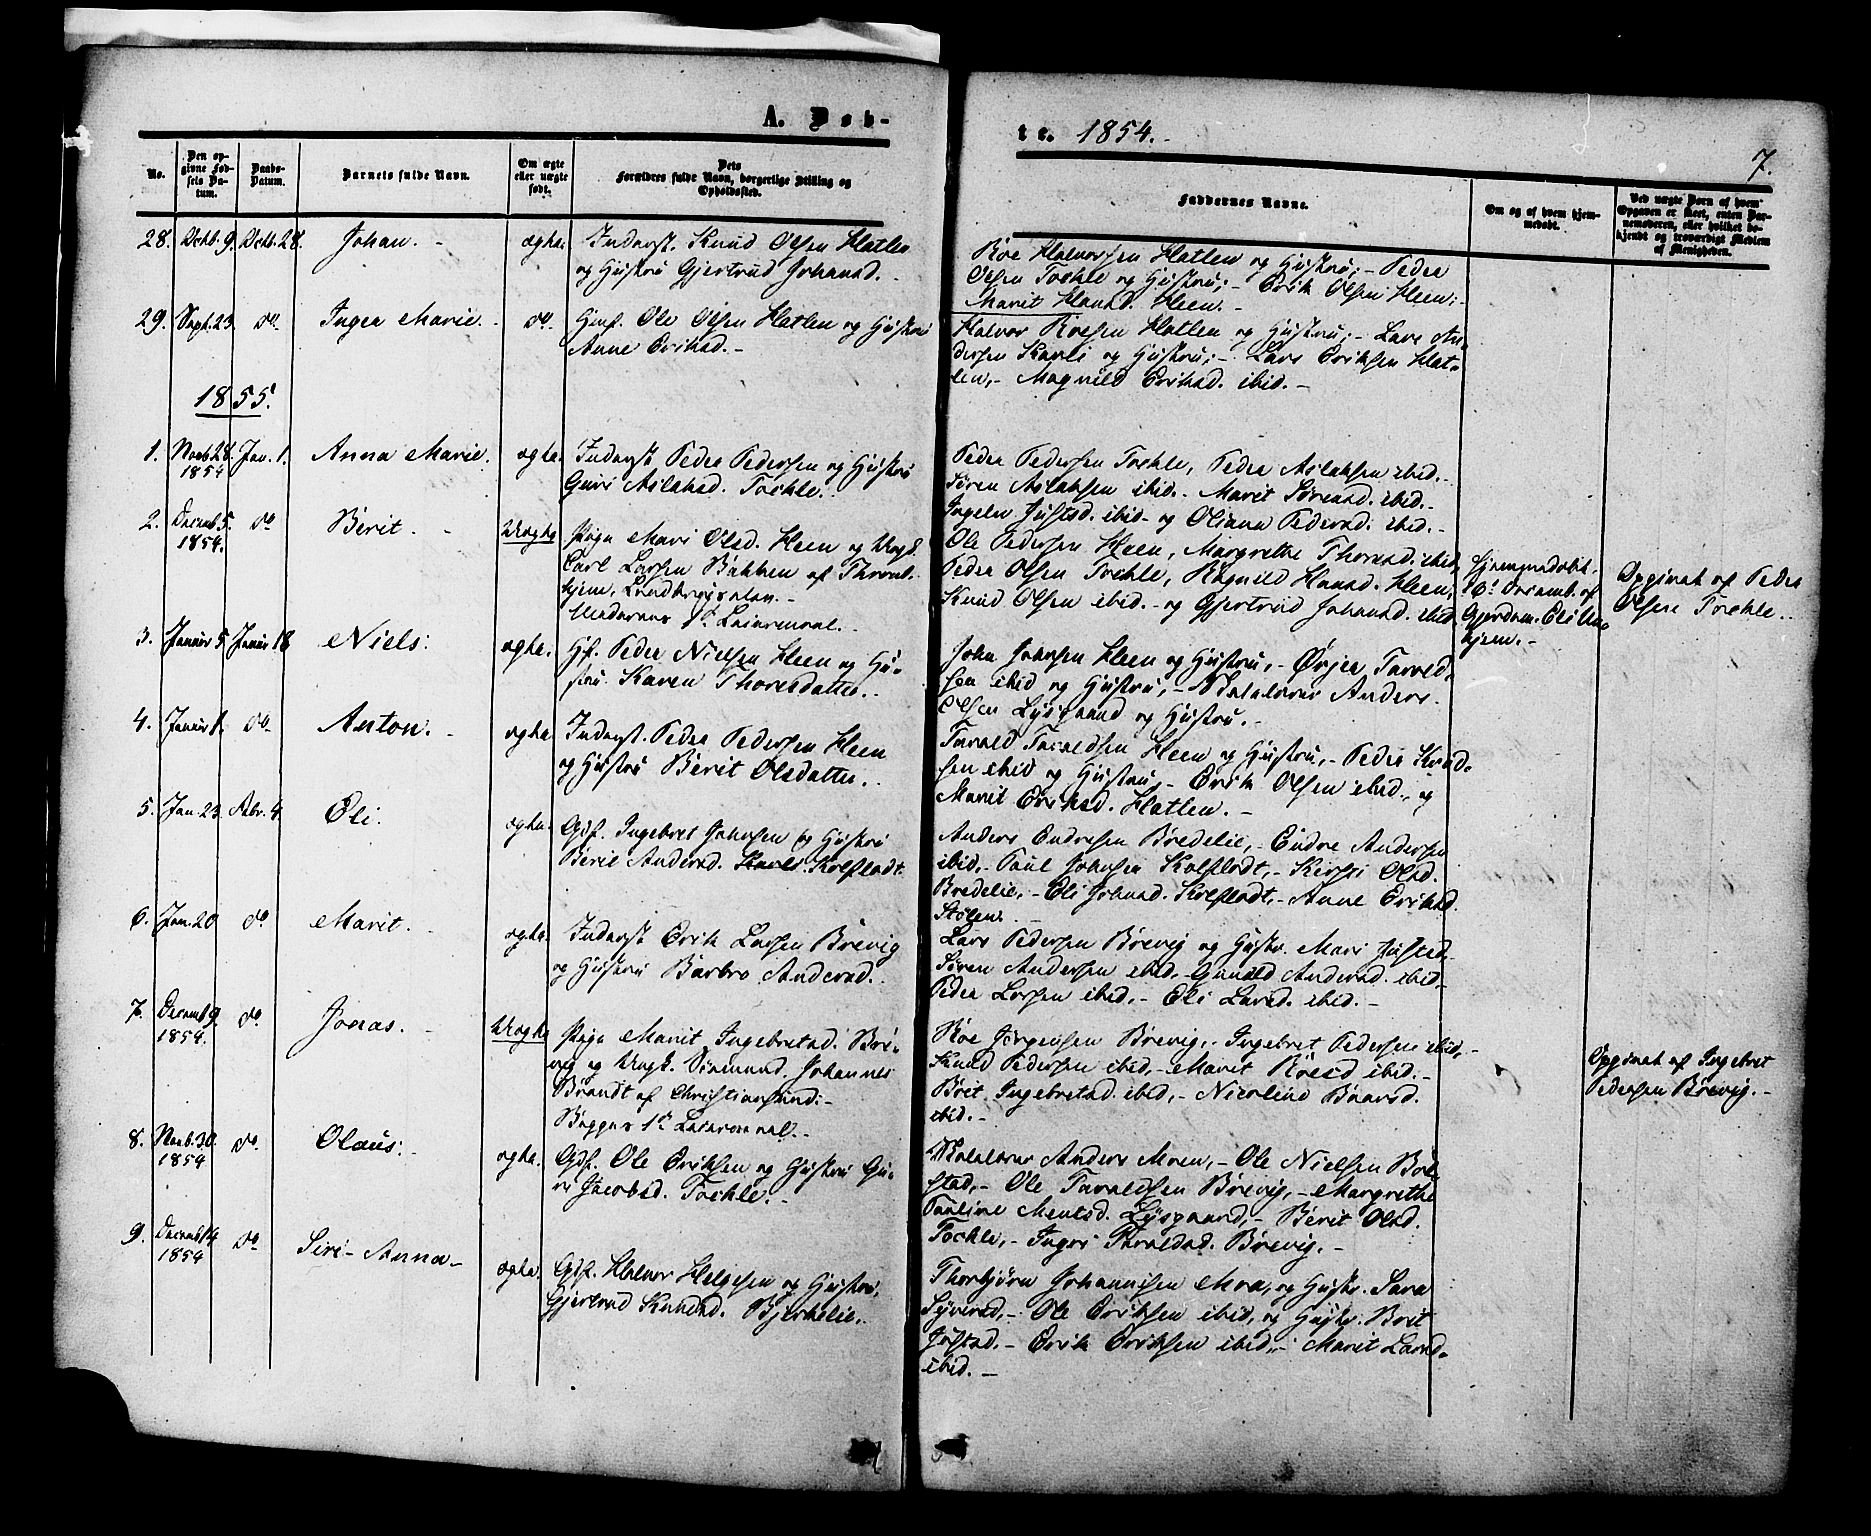 A. Døb-
te. 1854.-
7.
No.
Den op-
givne Fød-
sels Da-
tum.
Daabs-
Datum.
Barnets fulde Navn.
Om ægte
eller uægte
født.
Dets
Forældres fulde Navn, borgerlige Stilling og
Opholdssted.
Faddernes Navne.
Om og af hvem hjem-
medøbt.
Ved uægte Børn af hvem
Opgaven er skeet, enten Bar-
nemoderen, eller hvilket be-
kjendt og troværdigt Medlem
af Menigheden.
28. Dcbr. 9. Dcbr. 28. Johan. - ægte. Inderst. Knud Olsen Hatlen
og Hustru Gjertrud Johansd. -
Roe Halvorsen Hatlen og Hustru; - Peder
Olsen Tochle og Hustru; - Erik Olsen Heen; -
Marit Hansd. Heen. -
29. Sept. 23. do. Inger Marie. - do. Gmd. Ole Olsen Hatlen og Hustru
Anne Eriksd. -
Halvor Roesen Hatlen og Hustru; - Lars An-
dersen Karli og Hustru; - Lars Eriksen Hat-
len, - Magnild Eriksd. ibid. -
1855.
1. Novb. 28. 1854 Jan. 1. Anna Marie. ægte. Inderst Peder Pedersen og Hustru
Guri Aslaksd. Tochle. -
Peder Pedersen Tochle, Peder Aslaksen ibid. -
Søren Aslaksen ibid. - Marit Sørensd. ibid. -
Ingeln Justsd. ibid - og Oliana Pedersd. ibid. -
2. Decemb. 5. 1854. do Berit. - Uægte Pige Mari Olsd. Heen og Ungk.
Carl Larsen Bakken af Thrond-
hjem,
Moderens 1ste Leiermaal. -
Ole Pedersen Heen, Margrethe Thoresd. ibid.
Peder Olsen Tochle, Ragnild Hansd. Heen,
Knud Olsen ibid. - og Gjertrud Johansd. ibid
Hjemmedøbt
16de Decemb. af
Gjordem. Eli Un-
hjem. -
Opgivet af Peder
Olsen Tochle. -
3. Januar 5 Januar 18 Niels: ægte. Gf. Peder Nielsen Heen og Hu-
stru Karen Thoresdatter. -
John Johnsen Heen og Hustru, - Ørjer Tarald-
sen ibid og Hustru, - Skolelærer Anders
Olsen Lysgaard og Hustru. -
4. Januar 1. do Anton. - ægte. Inderst. Peder Pedersen Heen
og Hustru Berit Olsdatter. -
Tarald Taraldsen Heen og Hustru, - Peder Knud-
sen ibid og Hustru, - Erik Olsen ibid., og
Marit Eriksd. Hatlen. -
5. Jan. 23. Febr. 4. Eli. ægte. Gdf. Ingebret Johnsen og Hustru
Berit Andersd. Kolflodt.
Anders Endresen Bredelie, - Endre Andersen
ibid, - Paul Johnsen Kolflodt, - Kirsti Olsd.
Bredelie, - Eli Johnsd. Kolflodt, - Anne Eriksd.
Stølen. -
6. Jan. 20 do Marit. - ægte. Inderst Erik Larsen Brevig
og Hustru Barbro Andersd. -
Lars Pedersen Brevig og Hustr. Mari Justsd. -
Søren Andersen ibid, - Gunild Andersd. ibid, -
Peder Larsen ibid, - Eli Larsd. ibid. -
7. Decemb. 9. 1854. do. Jonas. - Uægte Pige Marit Ingebretsd. Bre-
vig og Ungk. Sivmund Johannes
Brandt af Christiansund: -
Begges 1ste Leiermaal. -
Roe Jørgensen Brevig, - Ingebret Pedersen ibid, -
Knud Pedersen ibid, - Marit Roesd ibid. -
Brit Ingebretsd. ibid, - Nicoline Baarsd.
ibid. -
Opgivet af Ingebret
Pedersen Brevig. -
8. Novb. 30. 1854 do. Olaus: - ægte. Gdf. Ole Eriksen og Hustru Gu-
ri Jacobsd. Tochle. -
Skolelærer Anders Moen, - Ole Nielsen Bol-
stad, - Ole Taraldsen Brevig, - Margrethe
Pauline Mentsd. Lysgaard, - Berit Olsd.
Tochle, - Ingri Taraldsd. Brevig. -
9. Decemb. 14 1854 do Siri-Anna - ægte. Gdf. Halvor Helgesen og Hustru,
Gjertrud Knudsd. Bjerkelie. -
Thorbjørn Johannesen Moa, og Hustr. Sara
Syversd, - Ole Eriksen ibid, og Hustr. Brit
Justsd. - Erik Eriksen ibid. - Marit Larsd.
ibid. -